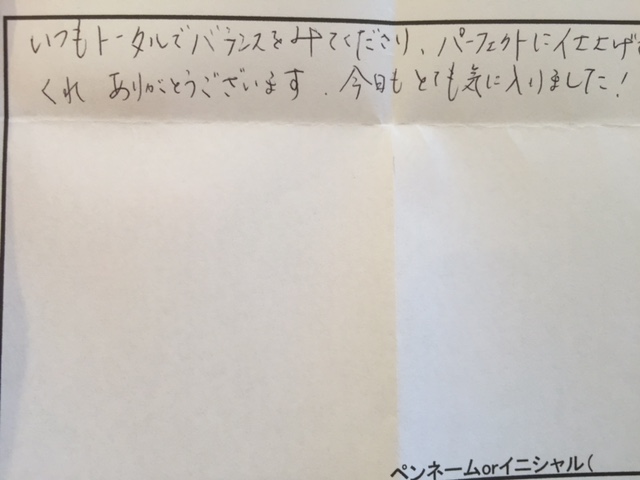 いつもトータルでバランスをみてくださり、パーフェクトに仕上げて
くれ ありがとうございます. 今日もとても気に入りました!
ペンネームorイニシャル(